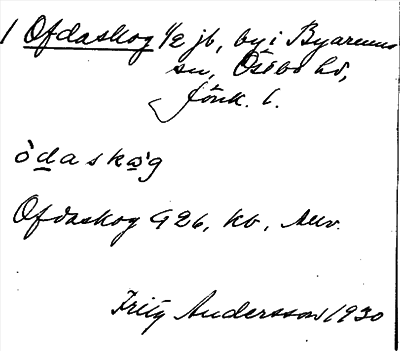 1 Ofdaskog 1/2 jb, by i Byarums
sn, Östbo hd,
Jönk. l.
òdaskò̀g
Ofdaskog 926, kb, Auv.
Fritz Andersson 1930